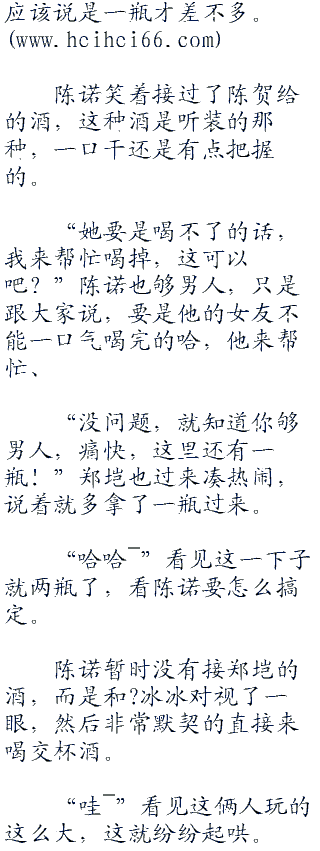 应该说是一瓶才差不多。
(www.hcihci66.com)
陈诺笑着接过了陈贺给
的酒，这种酒是听装的那
种，一口干还是有点把握
的。
“她要是喝不了的话，
我来帮忙喝掉，这可以
吧？”陈诺也够男人，只是
跟大家说，要是他的女友不
能一口气喝完的哈，他来帮
忙、
“没问题，就知道你够
男人，痛快，这里还有一
瓶！”郑垲也过来凑热闹，
说着就多拿了一瓶过来。
“哈哈¯”看见这一下子
就两瓶了，看陈诺要怎么搞
定。
陈诺暂时没有接郑垲的
酒，而是和?冰冰对视了一
眼，然后非常默契的直接来
喝交杯酒。
“哇¯”看见这俩人玩的
这么大，这就纷纷起哄。